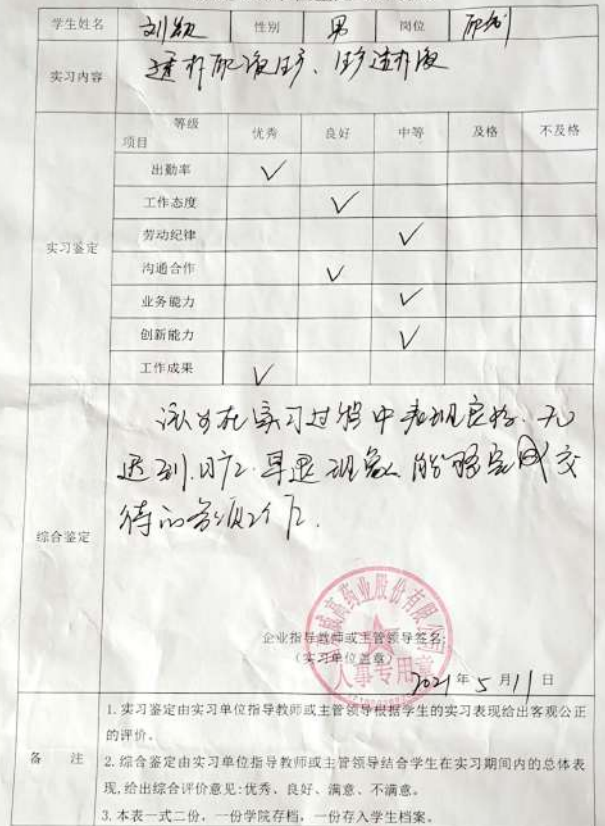 学生姓名 刘颖 性别 男 岗位 配剂
实习内容
等级 优秀 良好 中等 及格 不及格
项目
出勤率 ✓
工作态度 ✓
劳动纪律 ✓
实习鉴定
沟通合作 ✓
业务能力 ✓
创新能力 ✓
工作成果 ✓
该生在实习过程中表现良好.无
迟到.旷工.早退现象.能够完成交
待的各项工作.
综合鉴定
威高药业股份有限公司
企业指导教师或主管领导签名:
(实习单位盖章)
人事专用章
2021年5月11日
1.实习鉴定由实习单位指导教师或主管领导根据学生的实习表现给出客观公正
的评价。
备 注
2.综合鉴定由实习单位指导教师或主管领导结合学生在实习期间内的总体表
现,给出综合评价意见:优秀、良好、满意、不满意。
3.本表一式二份,一份学院存档,一份存入学生档案。